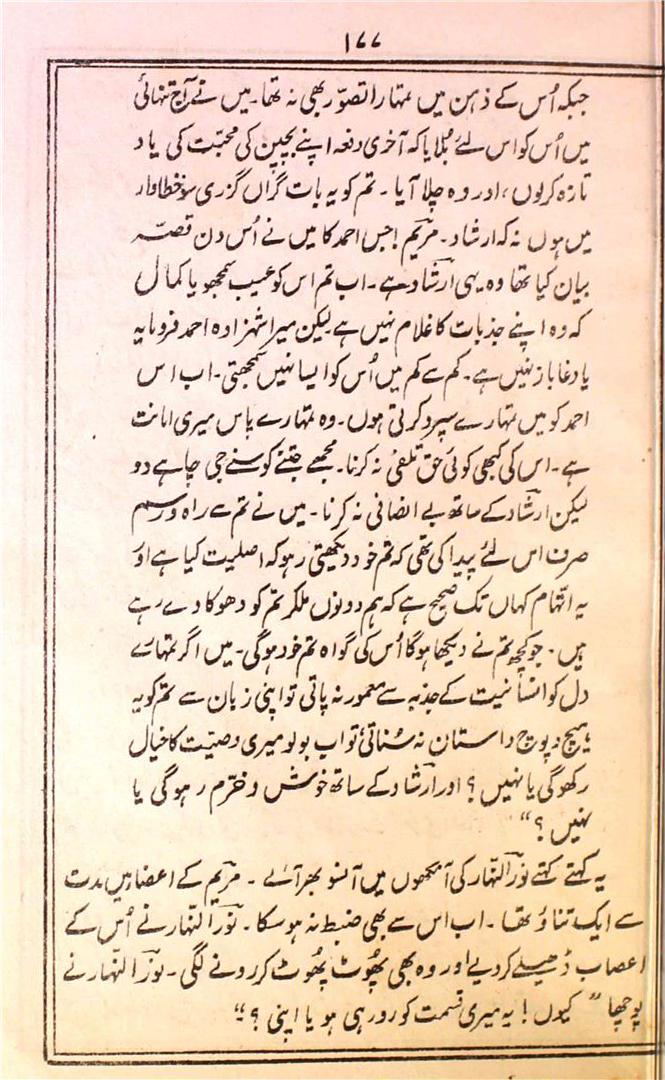 ۱۷۷
جبکہ اُس کے ذہن میں تمہارا تصوّر بھی نہ تھا۔ میں نے آج تنہائی
میں اُس کو اس لئے بُلایا کہ آخری دفعہ اپنے بچپن کی محبّت کی یاد
تازہ کرلوں، اور وہ چلا آیا۔ تم کو یہ بات گراں گزری سو خطاوار
میں ہوں نہ کہ ارشاد۔ مریم! جس احمد کا میں نے اُس دن قصّہ
بیان کیا تھا وہ یہی ارشاد ہے۔ اب تم اس کو عیب سمجھو یا کمال
کہ وہ اپنے جذبات کا غلام نہیں ہے لیکن میرا شہزادہ احمد فرومایہ
یا دغا باز نہیں ہے۔ کم سے کم میں اُس کو ایسا نہیں سمجھتی۔ اب اس
احمد کو میں تمہارے سپرد کرتی ہوں۔ وہ تمہارے پاس میری امانت
ہے۔ اس کی کبھی کوئی حق تلفی نہ کرنا۔ مجھے جتنے کوسنے جی چاہے دو
لیکن ارشاد کے ساتھ بے انصافی نہ کرنا۔ میں نے تم سے راہ و رسم
صرف اس لئے پیدا کی تھی کہ تم خود دیکھتی رہو کہ اصلیت کیا ہے اور
یہ اتّہام کہاں تک صحیح ہے کہ ہم دونوں ملکر تم کو دھوکا دے رہے
ہیں۔ جو کچھ تم نے دیکھا ہوگا اُس کی گواہ تم خود ہوگی۔ میں اگر تمہارے
دل کو انسانیت کے جذبہ سے معمور نہ پاتی تو اپنی زبان سے تم کو یہ
ہیچ و پوچ داستان نہ سُناتی تو اب بولو میری وصیّت کا خیال
رکھوگی یا نہیں؟ اور ارشاد کے ساتھ خوش و خرّم رہوگی یا
نہیں؟"
یہ کہتے کہتے نورالنّہار کی آنکھوں میں آنسو بھر آئے۔ مریم کے اعضا میں مدت
سے ایک تناؤ تھا۔ اب اس سے بھی ضبط نہ ہوسکا۔ نورالنّہار نے اُس کے
اعصاب ڈھیلے کردیے اور وہ بھی پھُوٹ پھُوٹ کر رونے لگی۔ نورالنّہار نے
پوچھا "کیوں! یہ میری قسمت کو رو رہی ہو یا اپنی؟"